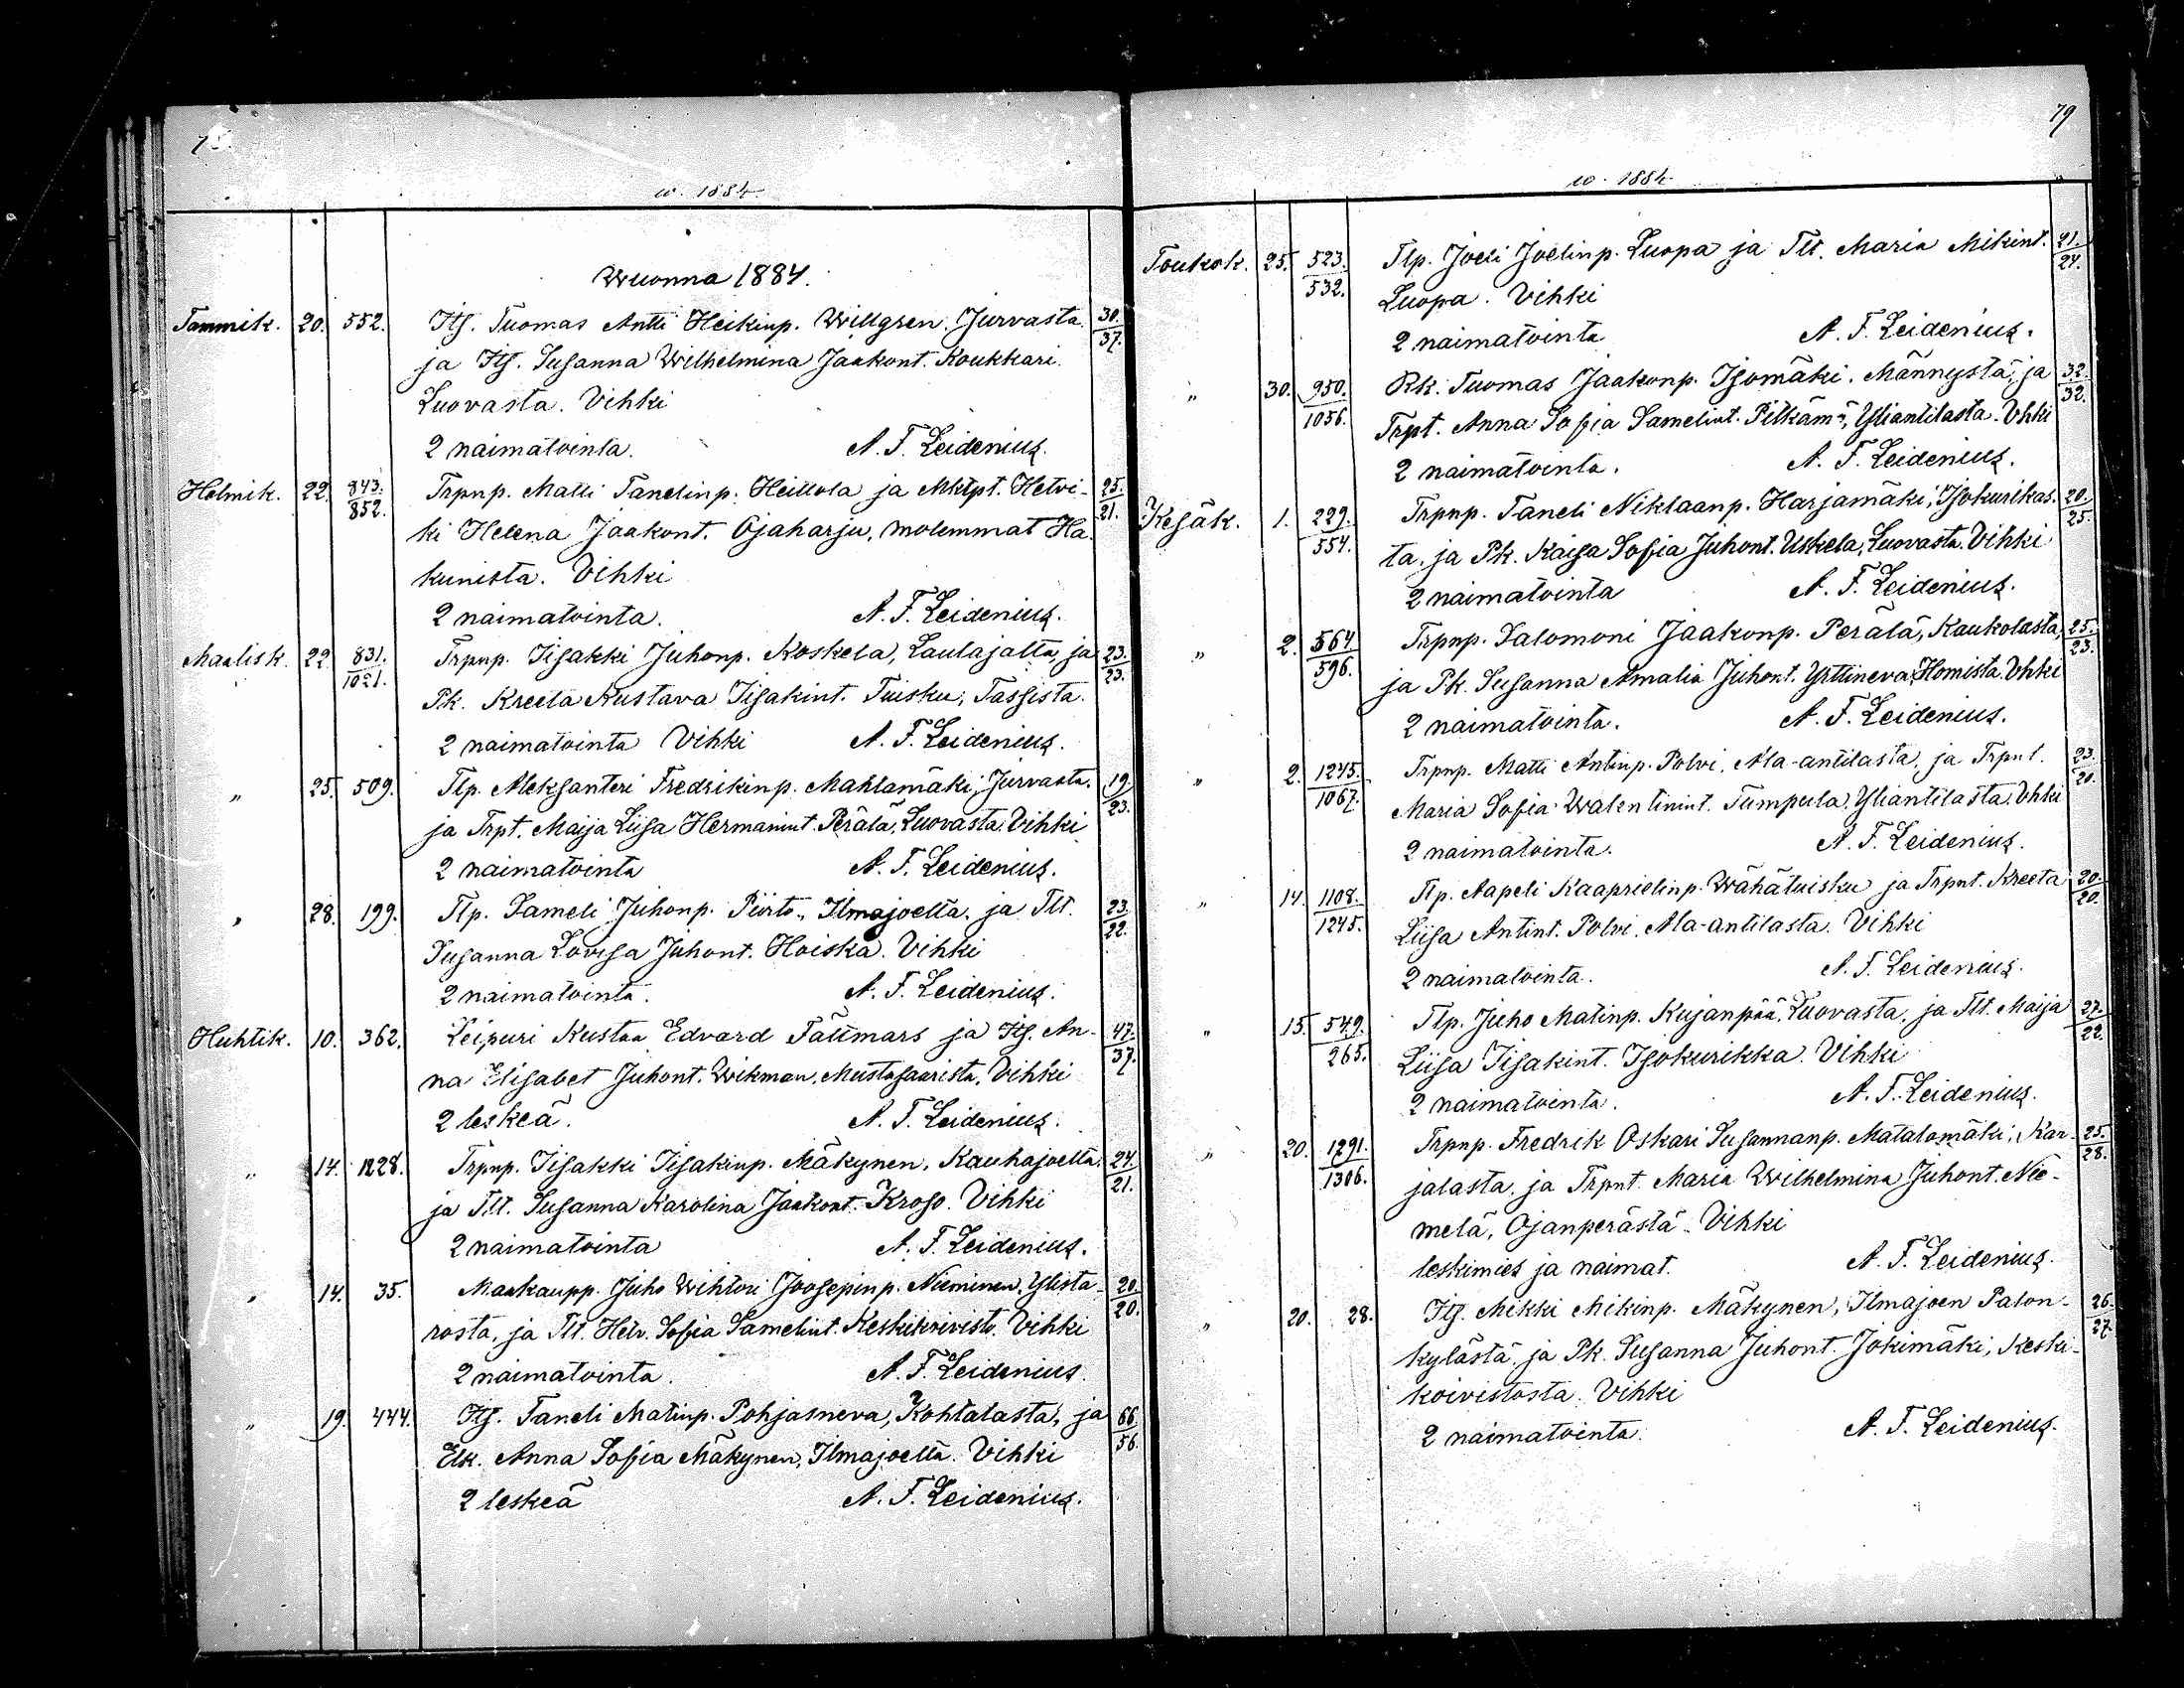 w. 1884.
Wuonna 1884.
Tammik. 20. 552. Itj. Tuomas Antti Heikinp. Willgren, Jurvasta, 30.
ja Itj. Susanna Wilhelmina Jaakont. Koukkari 37.
Luovasta. Vihki
2 naimatointa. A. F. Leidenius.
Helmik. 22. 843. Trpnp. Matti Tanelinp. Heillola ja Mktpt. Hetvi- 25.
852. ki Helena Jaakont. Ojaharju, molemmat Ha- 21.
kunista. Vihki
2 naimatointa. A. F. Leidenius.
Maalisk. 22. 831. Trpnp. Iisakki Juhonp. Koskela, Laulajalta, ja 23.
1021. Pk. Kreeta Kustava Iisakint. Tuisku, Tassista. 23.
2 naimatointa Vihki A. F. Leidenius.
„ 25. 509. Tlp. Aleksanteri Fredrikinp. Mahlamäki, Jurvasta, 19.
ja Trpt. Maija Liisa Hermanint. Perälä, Luovasta. Vihki 23.
2 naimatointa A. F. Leidenius.
„ 28. 199. Tlp. Sameli Juhonp. Piirto, Ilmajoelta, ja Tlt. 23.
Susanna Lovisa Juhont. Hoiska. Vihki 22.
2 naimatointa. A. F. Leidenius.
Huhtik. 10. 362. Leipuri Kustaa Edvard Fältmars ja Itj. An- 47.
na Elisabet Juhont. Wikman, Mustasaarista. Vihki 37.
2 leskeä. A. F. Leidenius.
„ 14. 1228. Trpnp. Iisakki Iisakinp. Mäkynen, Kauhajoelta, 24.
ja Tlt. Susanna Karolina Jaakont. Kroso. Vihki 21.
2 naimatointa A. F. Leidenius.
„ 14. 35. Maakaupp. Juho Wihtori Joosepinp. Nieminen, Ylista- 20.
rosta, ja Tlt. Hetv. Sofia Samelint. Keskikoivisto. Vihki 20.
2 naimatointa. A. F. Leidenius.
„ 19. 444. Itj. Taneli Matinp. Pohjasneva, Kohtalasta, ja 66.
Elk. Anna Sofia Mäkynen, Ilmajoelta. Vihki 56.
2 leskeä A. F. Leidenius.
79
w. 1884.
Toukok. 25. 523. Tlp. Joeli Joelinp. Luopa ja Tlt. Maria Mikint. 21.
532. Luopa. Vihki 24.
2 naimatointa A. F. Leidenius.
„ 30. 950. Rk. Tuomas Jaakonp. Isomäki, Männystä, ja 32.
1056. Trpt. Anna Sofia Samelint. Pitkäm., Yliantilasta. Vhki 32.
2 naimatointa. A. F. Leidenius.
Kesäk. 1. 229. Trpnp. Taneli Niklaanp. Harjamäki, Isokurikas- 20.
554. ta, ja Pk. Kaisa Sofia Juhont. Uskela, Luovasta. Vihki 25.
2 naimatointa A. F. Leidenius.
„ 2. 564. Trpnp. Salomoni Jaakonp. Perälä, Kaukolasta, 25.
596. ja Pk. Susanna Amalia Juhont. Yrttineva, Homista. Vhki 23.
2 naimatointa. A. F. Leidenius.
„ 2. 1245. Trpnp. Matti Antinp. Polvi, Ala-antilasta, ja Trpnt. 23.
1067. Maria Sofia Walentinint. Tumpula, Yliantilasta. Vhki 20.
2 naimatointa. A. F. Leidenius.
„ 14. 1108. Tlp. Aapeli Kaaprielinp. Wähätuisku ja Trpnt. Kreeta 20.
1245. Liisa Antint. Polvi, Ala-antilasta. Vihki 20.
2 naimatointa. A. F. Leidenius.
„ 15. 549. Tlp. Juho Matinp. Kujanpää, Luovasta, ja Tlt. Maija 27.
265. Liisa Iisakint. Isokurikka. Vihki 22.
2 naimatointa. A. F. Leidenius.
„ 20. 1291. Trpnp. Fredrik Oskari Susannanp. Matalamäki, Kar- 25.
1306. jalasta, ja Trpnt. Maria Wilhelmina Juhont. Nie- 28.
melä, Ojanperästä. Vihki
leskimies ja naimat. A. F. Leidenius.
„ 20. 28. Itj. Mikki Mikinp. Mäkynen, Ilmajoen Palon- 26.
kylästä, ja Pk. Susanna Juhont. Jokimäki, Keski- 27.
koivistosta. Vihki
2 naimatointa. A. F. Leidenius.